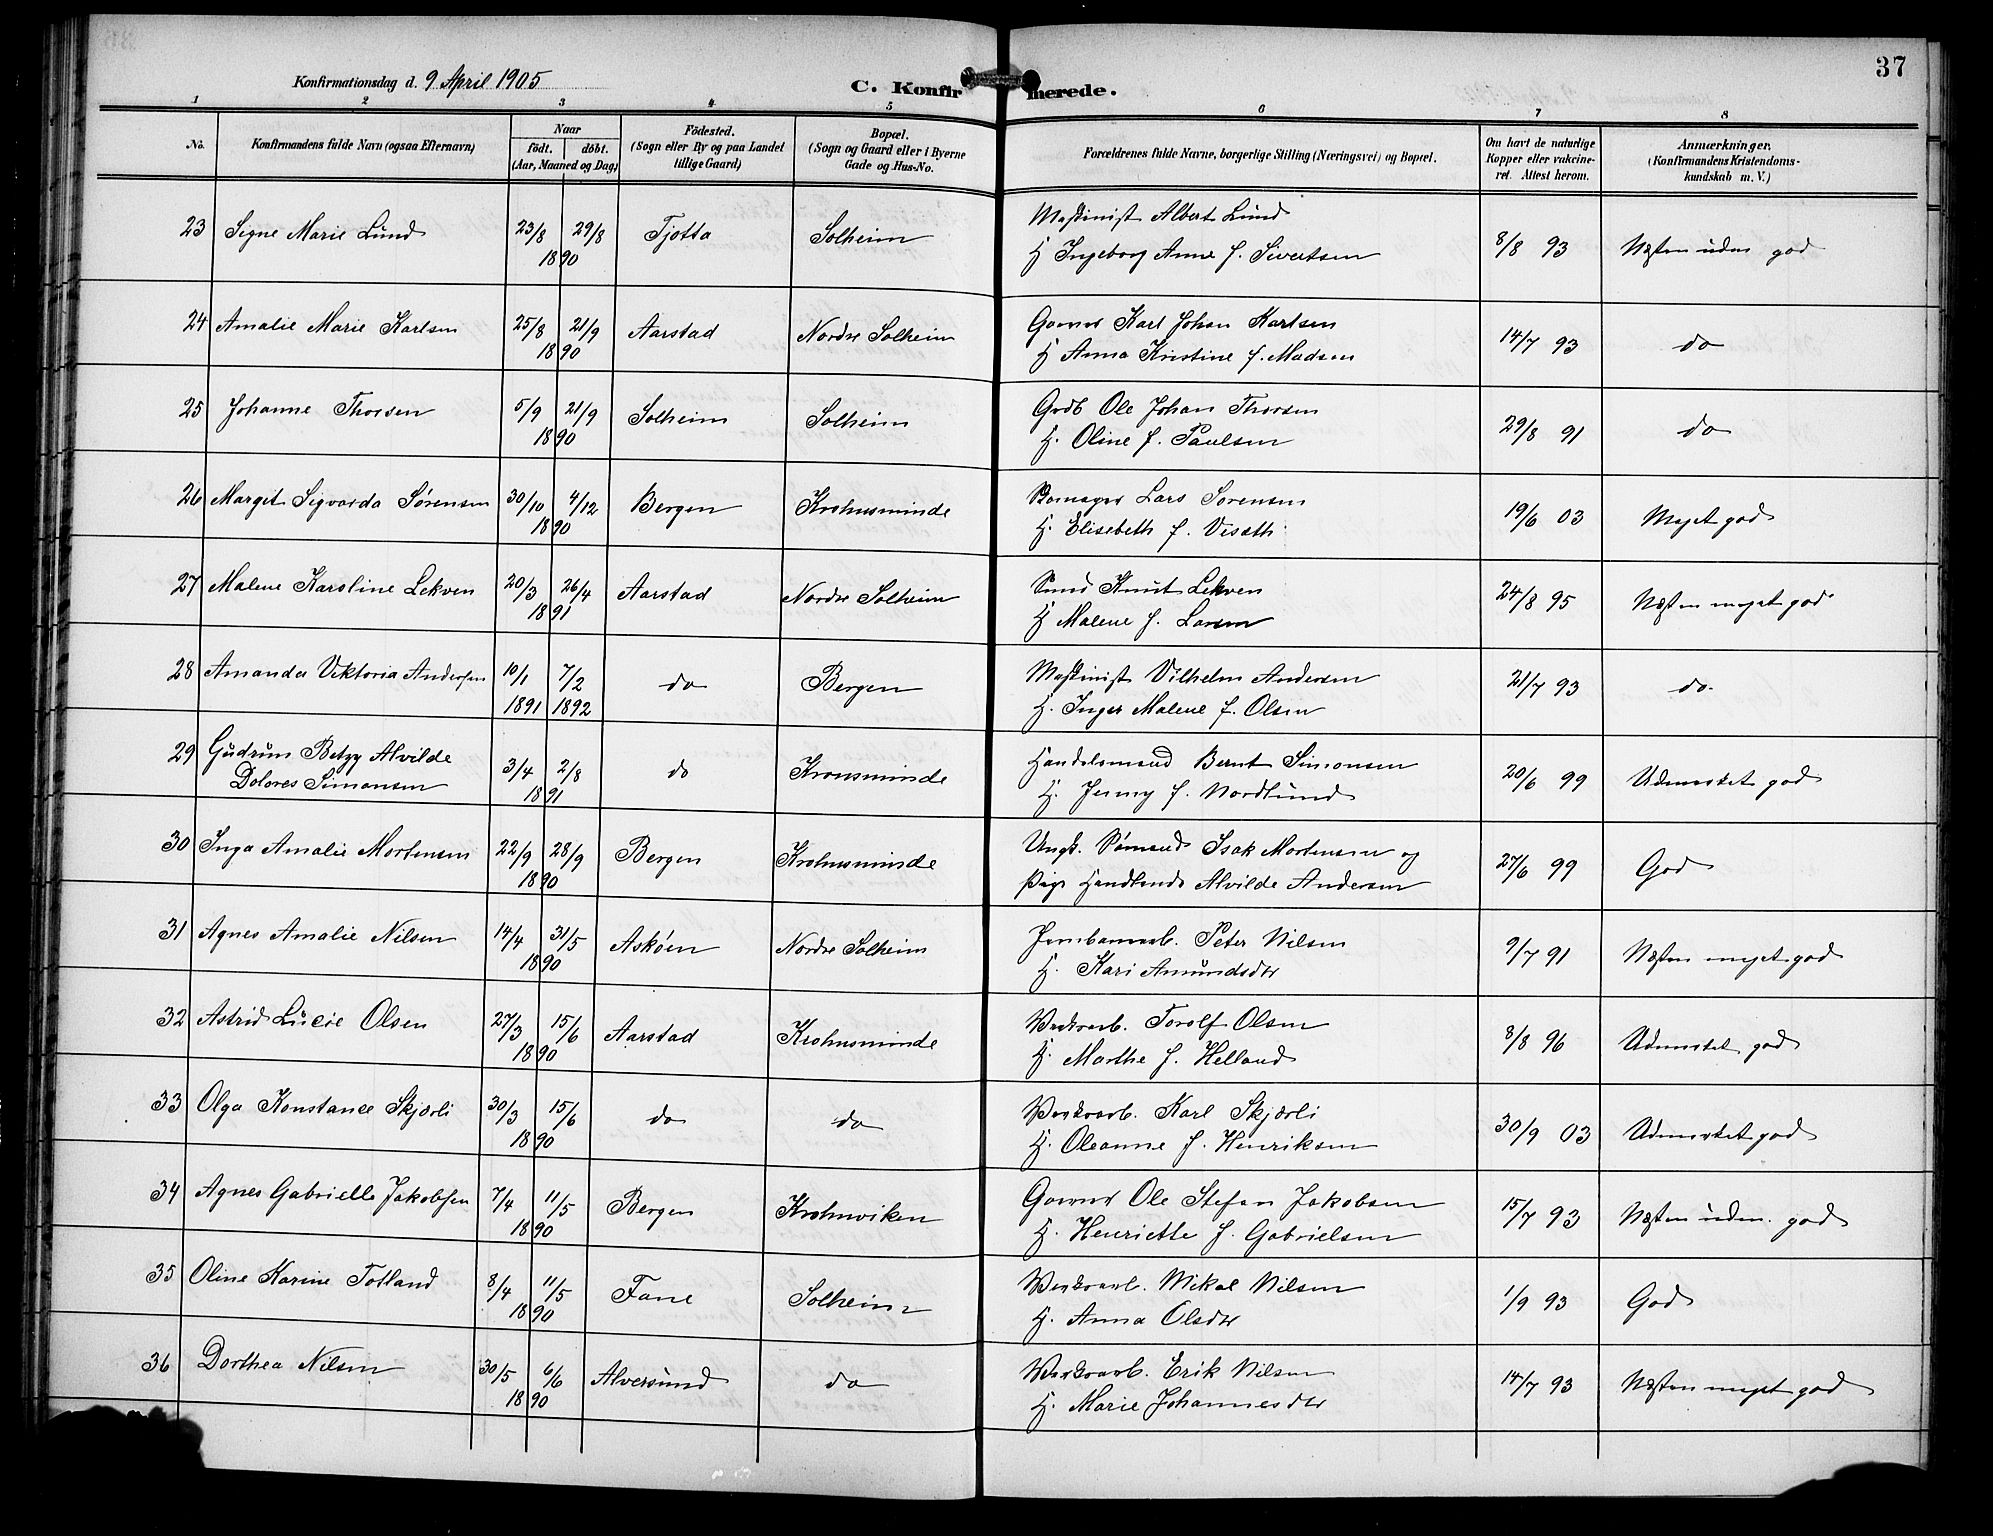 37
Konfirmationsdag d. 9 April 1905
C. Konfirmerede.
1 2 3 4 5 6 7 8
No.
Konfirmandens fulde Navn (ogsaa Efternavn)
Naar
født. døbt.
(Aar, Maaned og Dag)
Födested.
(Sogn eller By og paa Landet
tillige Gaard)
Bopæl.
(Sogn og Gaard eller i Byerne
Gade og Hus-No.
Forældrenes fulde Navne, borgerlige Stilling (Næringsvei) og Bopæl.
Om havt de naturlige
Kopper eller vakcine-
ret. Attest herom.
Anmærkninger.
(Konfirmandens Kristendoms-
kundskab m. V.)
23 Signe Marie Lund 23/8 29/8 1890 Tjotta Solheim
Maskinist Albert Lund
H Ingeborg Anne f. Sivertsen
8/8 93 Næsten udm god
24 Amalie Marie Karlsen 25/8 21/9 1890 Aarstad Nordre Solheim
Karl Johan Karlsen
H Anna Kristine f. Madsen
14/7 93 do
25 Johanne Thorsen 5/9 21/9 1890 Solheim Solheim
Grdb Ole Johan Thorsen
H. Oline f. Paulsen
29/8 91 do
26 Margit Sigvarda Sørensen 30/10 4/12 1890 Bergen Krohnsminde
Lars Sørensen
H. Elisabeth f.
19/6 03 Meget god
27 Malene Karoline Lekven 20/3 26/4 1891 Aarstad Nordre Solheim
Knut Lekven
H Malene f. Larsen
24/8 95 Næsten meget god
28 Amanda Viktoria Andersen 10/1 1891 7/2 1892 do Bergen
Maskinist Vilhelm Andersen
H. Inger Malene f. Olsen
21/7 93 do.
29 Gudrun Betzy Alvilde
Dolores Simonsen 3/4 2/8 1891 do Kronsminde
Handelsmand Bernt Simonsen
H. Jenny f. Nordlund
20/6 99 Udmerket god
30 Inga Amalie Mortensen 22/9 28/9 1890 Bergen Krohnsminde
Ungk. Sømand Isak Mortensen og
Pige Alvilde Andersen
27/6 99 God
31 Agnes Amalie Nilsen 14/4 31/5 1890 Askøen Nordre Solheim
Jernbanearb. Peter Nilsen
H. Kari Amundsdtr
9/7 91 Næsten meget god
32 Astrid Lucie Olsen 27/3 15/6 1890 Aarstad Krohnsminde
Verksarb. Torolf Olsen
H. Marthe f. Helland
8/8 96 Udmerket god
33 Olga Konstance Skjærli 30/3 15/6 1890 do do
Verksarb. Karl Skjærli
H. Oleanne f. Henriksen
30/9 03 Udmerket god
34 Agnes Gabrielle Jakobsen 7/4 11/5 1890 Bergen Krohnviken
Ole Stefan Jakobsen
H. Henriette f. Gabrielsen
15/7 93 Næsten udm. god
35 Oline Karine Totland 8/4 11/5 1890 Fane Solheim
Verksarb. Mikal Nilsen
H. Anna Olsdtr
1/9 93 God
36 Dorthea Nilsen 30/5 6/6 1890 Alversund do
Verksarb. Erik Nilsen
H. Marie Johannesdtr
14/7 93 Næsten meget god